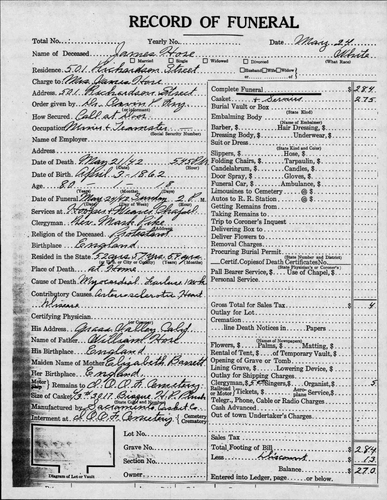 RECORD OF FUNERAL
Total No. Yearly No. Date May 24
Name of Deceased James Hose White
Married Single Widowed Divorced (What Race)
Residence 501 Richardson Street Husband Wife Widow
Charge to Mrs James Hose
Address 501 Richardson Street
Order given by
How Secured Call at Door
Occupation Miner & Teamster (Social Security Number)
Name of Employer
Address
Date of Death May 21/42
Date of Birth April 3 - 1862
Age 80 18
Date of Funeral May 24/42 Sunday 2 P.M.
Services at Hooper & Weaver Chapel
Clergyman Rev.
Religion of the Deceased Protestant
Birthplace England
Resided in the State 52 yrs 57 yrs 59 yrs
Place of Death at Home
Cause of Death Myocardial failure
Contributory Causes Arteriosclerotic Heart
Disease
Certifying Physician
His Address Grass Valley Calif
Name of Father William Hose
His Birthplace England
Maiden Name of Mother Elizabeth Bassett
Her Birthplace England
Remains to I.O.O.F. Cemetery
Size of Casket
Manufactured by Sacramento Casket Co.
Interment at I.O.O.F. Cemetery Cemetery Crematory
Lot No.
Grave No.
Section No.
Owner
Diagram of Lot or Vault
Complete Funeral $ 284
Casket & Service 275
Burial Vault or Box
(State Kind)
Embalming Body
(Name of Embalmer)
Barber, $ Hair Dressing, $
Dressing Body, $ Underwear, $
Suit or Dress
(State Kind and Color)
Slippers, $ Hose, $
Folding Chairs, $ Tarpaulin, $
Candelabrum, $ Candles, $
Door Spray, $ Gloves, $
Funeral Car, $ Ambulance, $
Limousines to Cemetery @ $
Autos to R. R. Station @ $
Getting Remains from
Taking Remains to
Trip to Coroner's Inquest
Delivering Box to
Deliver Flowers to
Removal Charges
Procuring Burial Permit
(State Number and District)
Certif. Copies of Death Certificate No.
Pall Bearer Service, $ Use of Chapel, $
Personal Service
Gross Total for Sales Tax $ 4
Outlay for Lot
Cremation
line Death Notices in Papers
Flowers, $ Palms, $ Matting, $
Rental of Tent, $ of Temporary Vault, $
Opening of Grave or Tomb
Lining Grave, $ Lowering Device, $
Outlay for Shipping Charges
Clergyman, $ 5 Singers, $ Organist, $ 5
Telegr., Phone, Cable or Radio Charges
Cash Advanced
Out of town Undertaker's Charges
Sales Tax
Total Footing of Bill $ 284
Less Discount 13
Balance $ 270
Entered into Ledger, page or below.